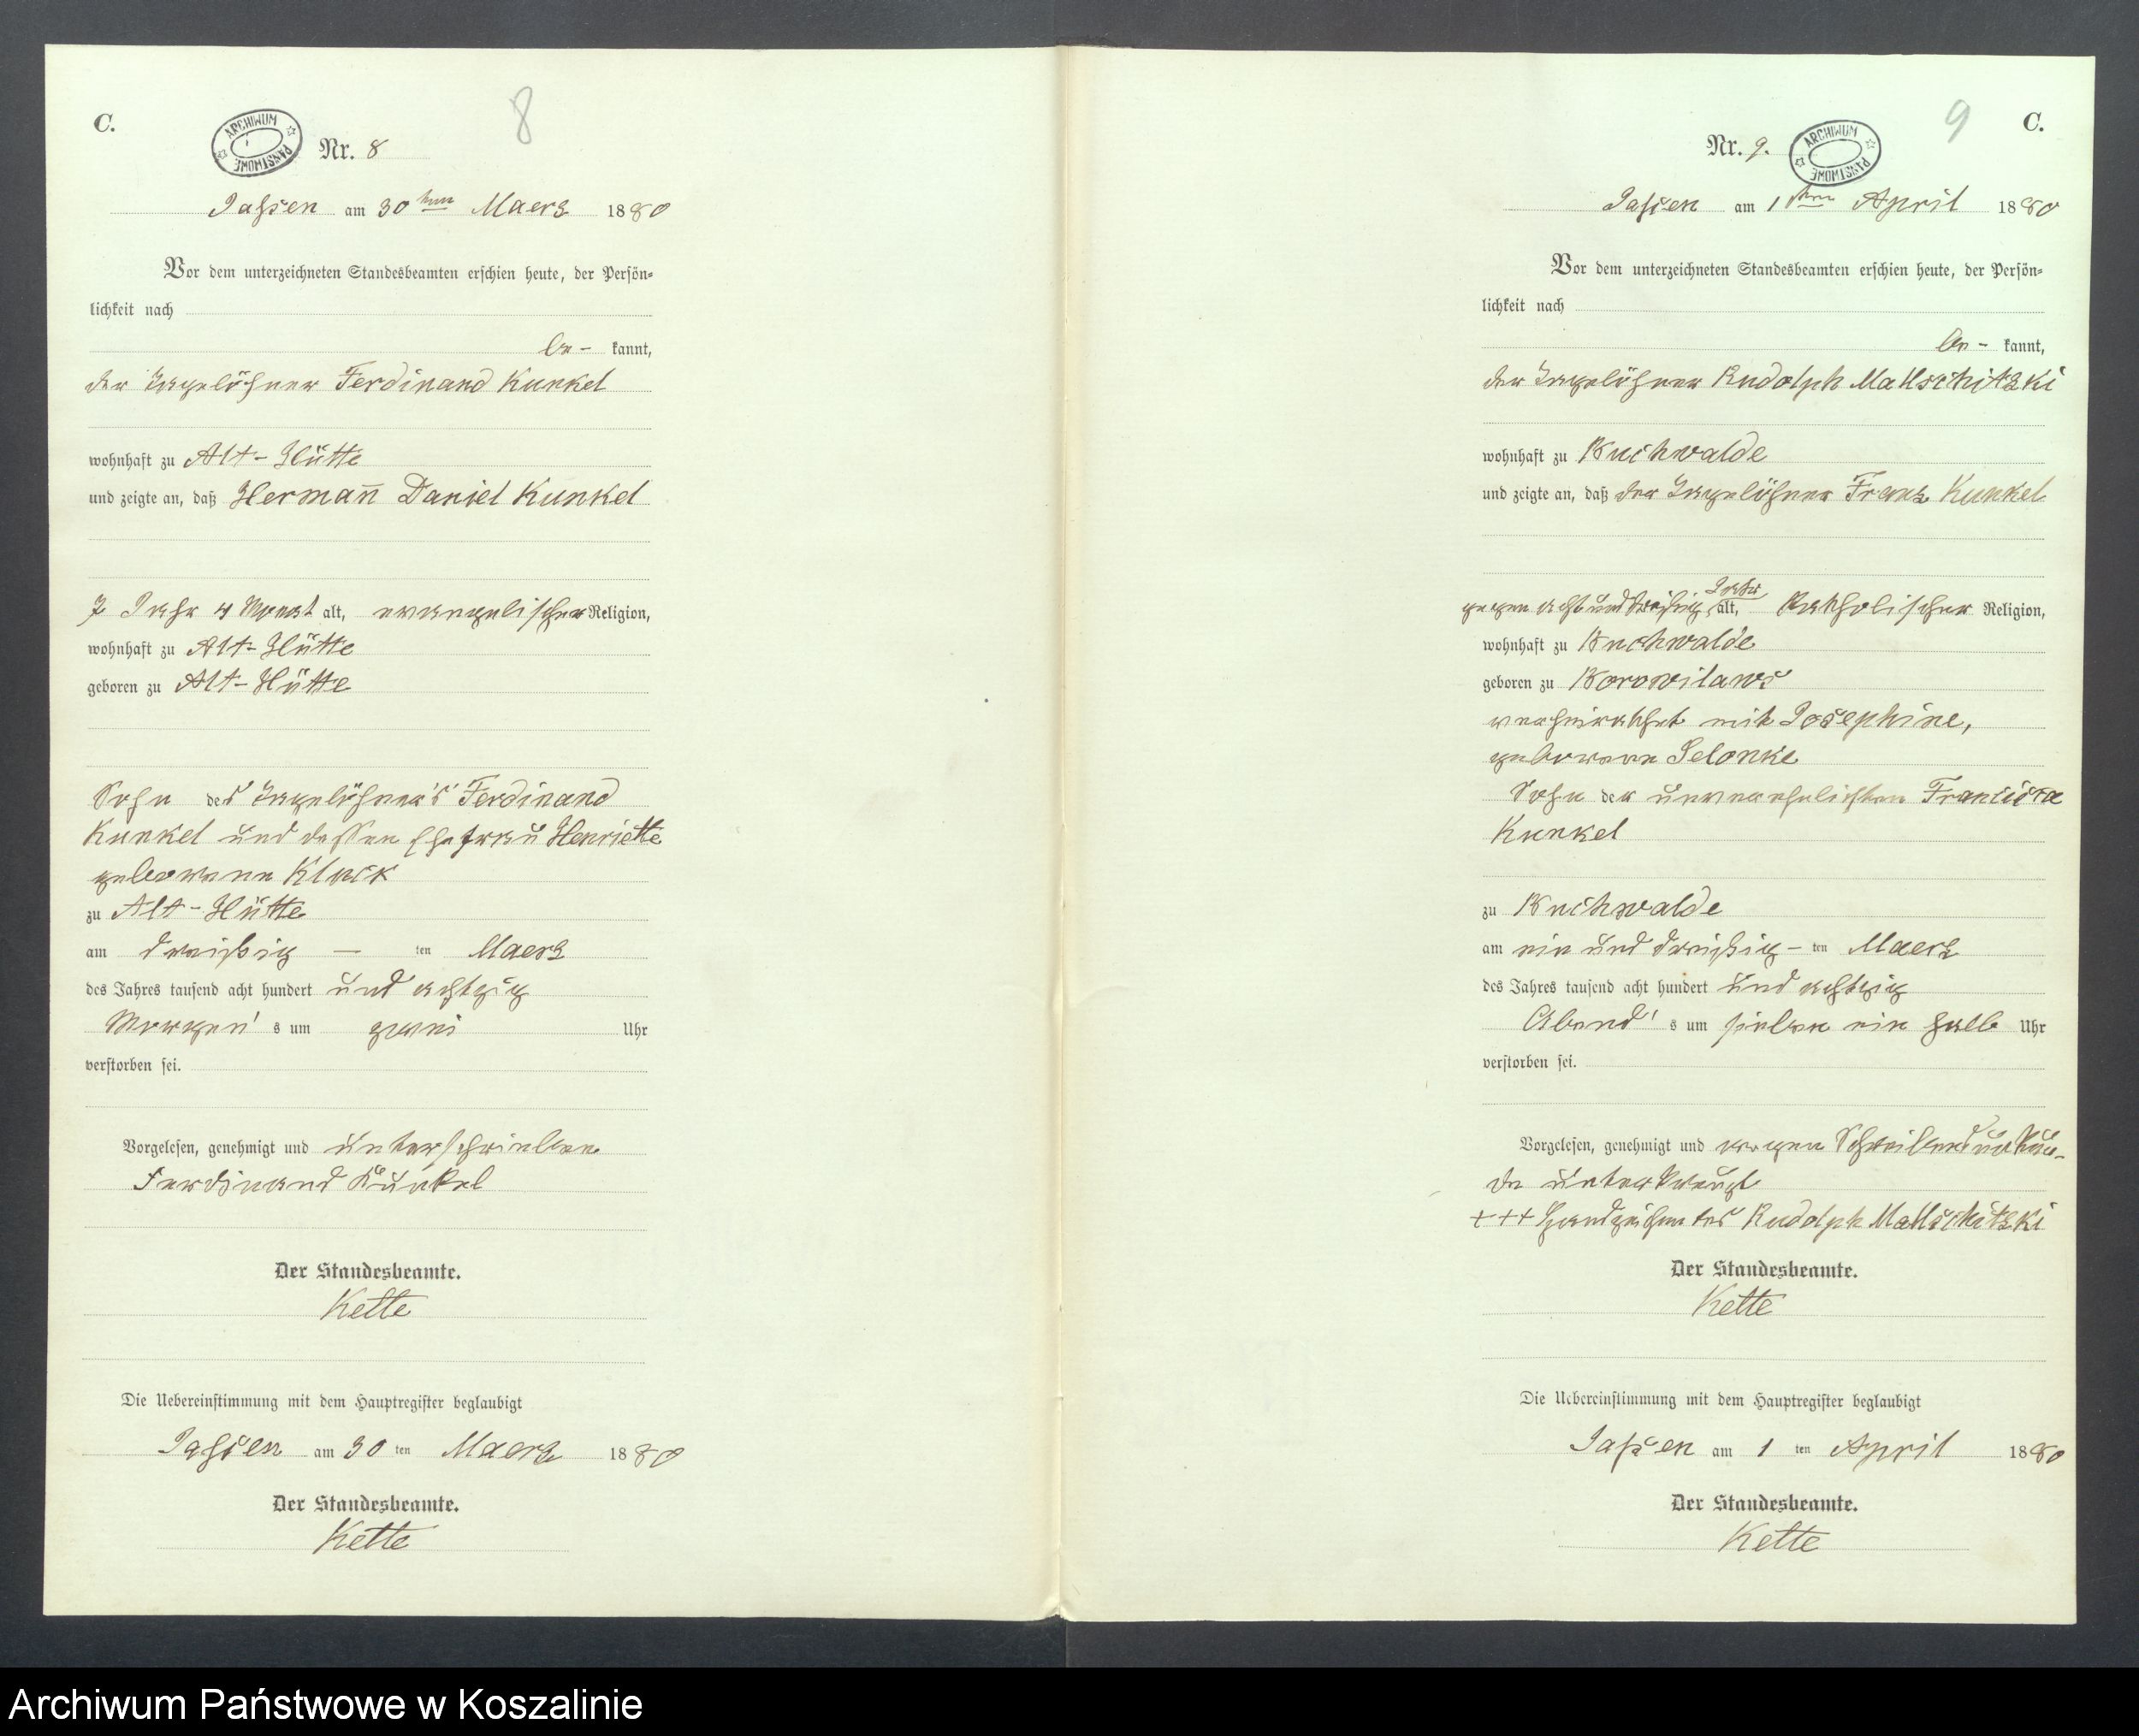 C.
ARCHIWUM PAŃSTWOWE
Nr. 8
8
Jassen am 30ten Maerz 1880
Vor dem unterzeichneten Standesbeamten erschien heute, der Persön-
lichkeit nach
be- kannt,
der Tagelöhner Ferdinand Kunkel
wohnhaft zu Alt-Hütte
und zeigte an, daß Hermañ Daniel Kunkel
7 Jahr 4 Monat alt, evangelischer Religion,
wohnhaft zu Alt-Hütte
geboren zu Alt-Hütte
Sohn des Tagelöhner's Ferdinand
Kunkel und dessen Ehefrau Henriette
geborene Kluck
zu Alt-Hütte
am dreißig — ten Maerz
des Jahres tausend acht hundert und achtzig
Morgen's um zwei Uhr
verstorben sei.
Vorgelesen, genehmigt und unterschrieben
Ferdinand Kunkel
Der Standesbeamte.
Kette
Die Uebereinstimmung mit dem Hauptregister beglaubigt
Jassen am 30 ten Maerz 1880
Der Standesbeamte.
Kette
9
C.
Nr. 9.
ARCHIWUM PAŃSTWOWE
Jassen am 1ten April 1880
Vor dem unterzeichneten Standesbeamten erschien heute, der Persön-
lichkeit nach
be- kannt,
der Tagelöhner Rudolph Mallschitzki
wohnhaft zu Buchwalde
und zeigte an, daß der Tagelöhner Franz Kunkel
gegen acht und dreißig Jahr alt, katholischer Religion,
wohnhaft zu Buchwalde
geboren zu Borowilaws
verheirathet mit Josephine,
geborene Selonke
Sohn der unverehelichten Francisca
Kunkel
zu Buchwalde
am ein und dreißig - ten Maerz
des Jahres tausend acht hundert und achtzig
Abend's um sieben ein halb Uhr
verstorben sei.
Vorgelesen, genehmigt und wegen Schreibensunkun-
de unterkreuzt
+++ Handzeichen des Rudolph Mallschitzki
Der Standesbeamte.
Kette
Die Uebereinstimmung mit dem Hauptregister beglaubigt
Jassen am 1 ten April 1880
Der Standesbeamte.
Kette
Archiwum Państwowe w Koszalinie